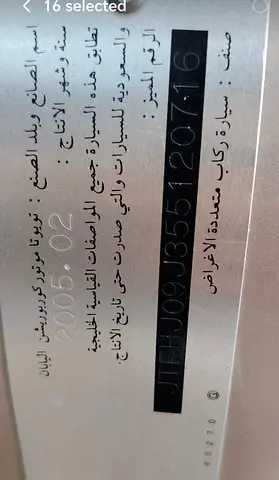 16 selected
اسم الصانع وبلد الصنع : تويوتا موتور كوربوريشن اليابان
سنة وشهر الانتاج : 2005.02
تطابق هذه السيارة جميع المواصفات القياسية الخليجية
والسعودية للسيارات والتي صدرت حتى تاريخ الانتاج.
الرقم المميز :
JTEHJ09J355120716
صنف : سيارة ركاب متعددة الاغراض